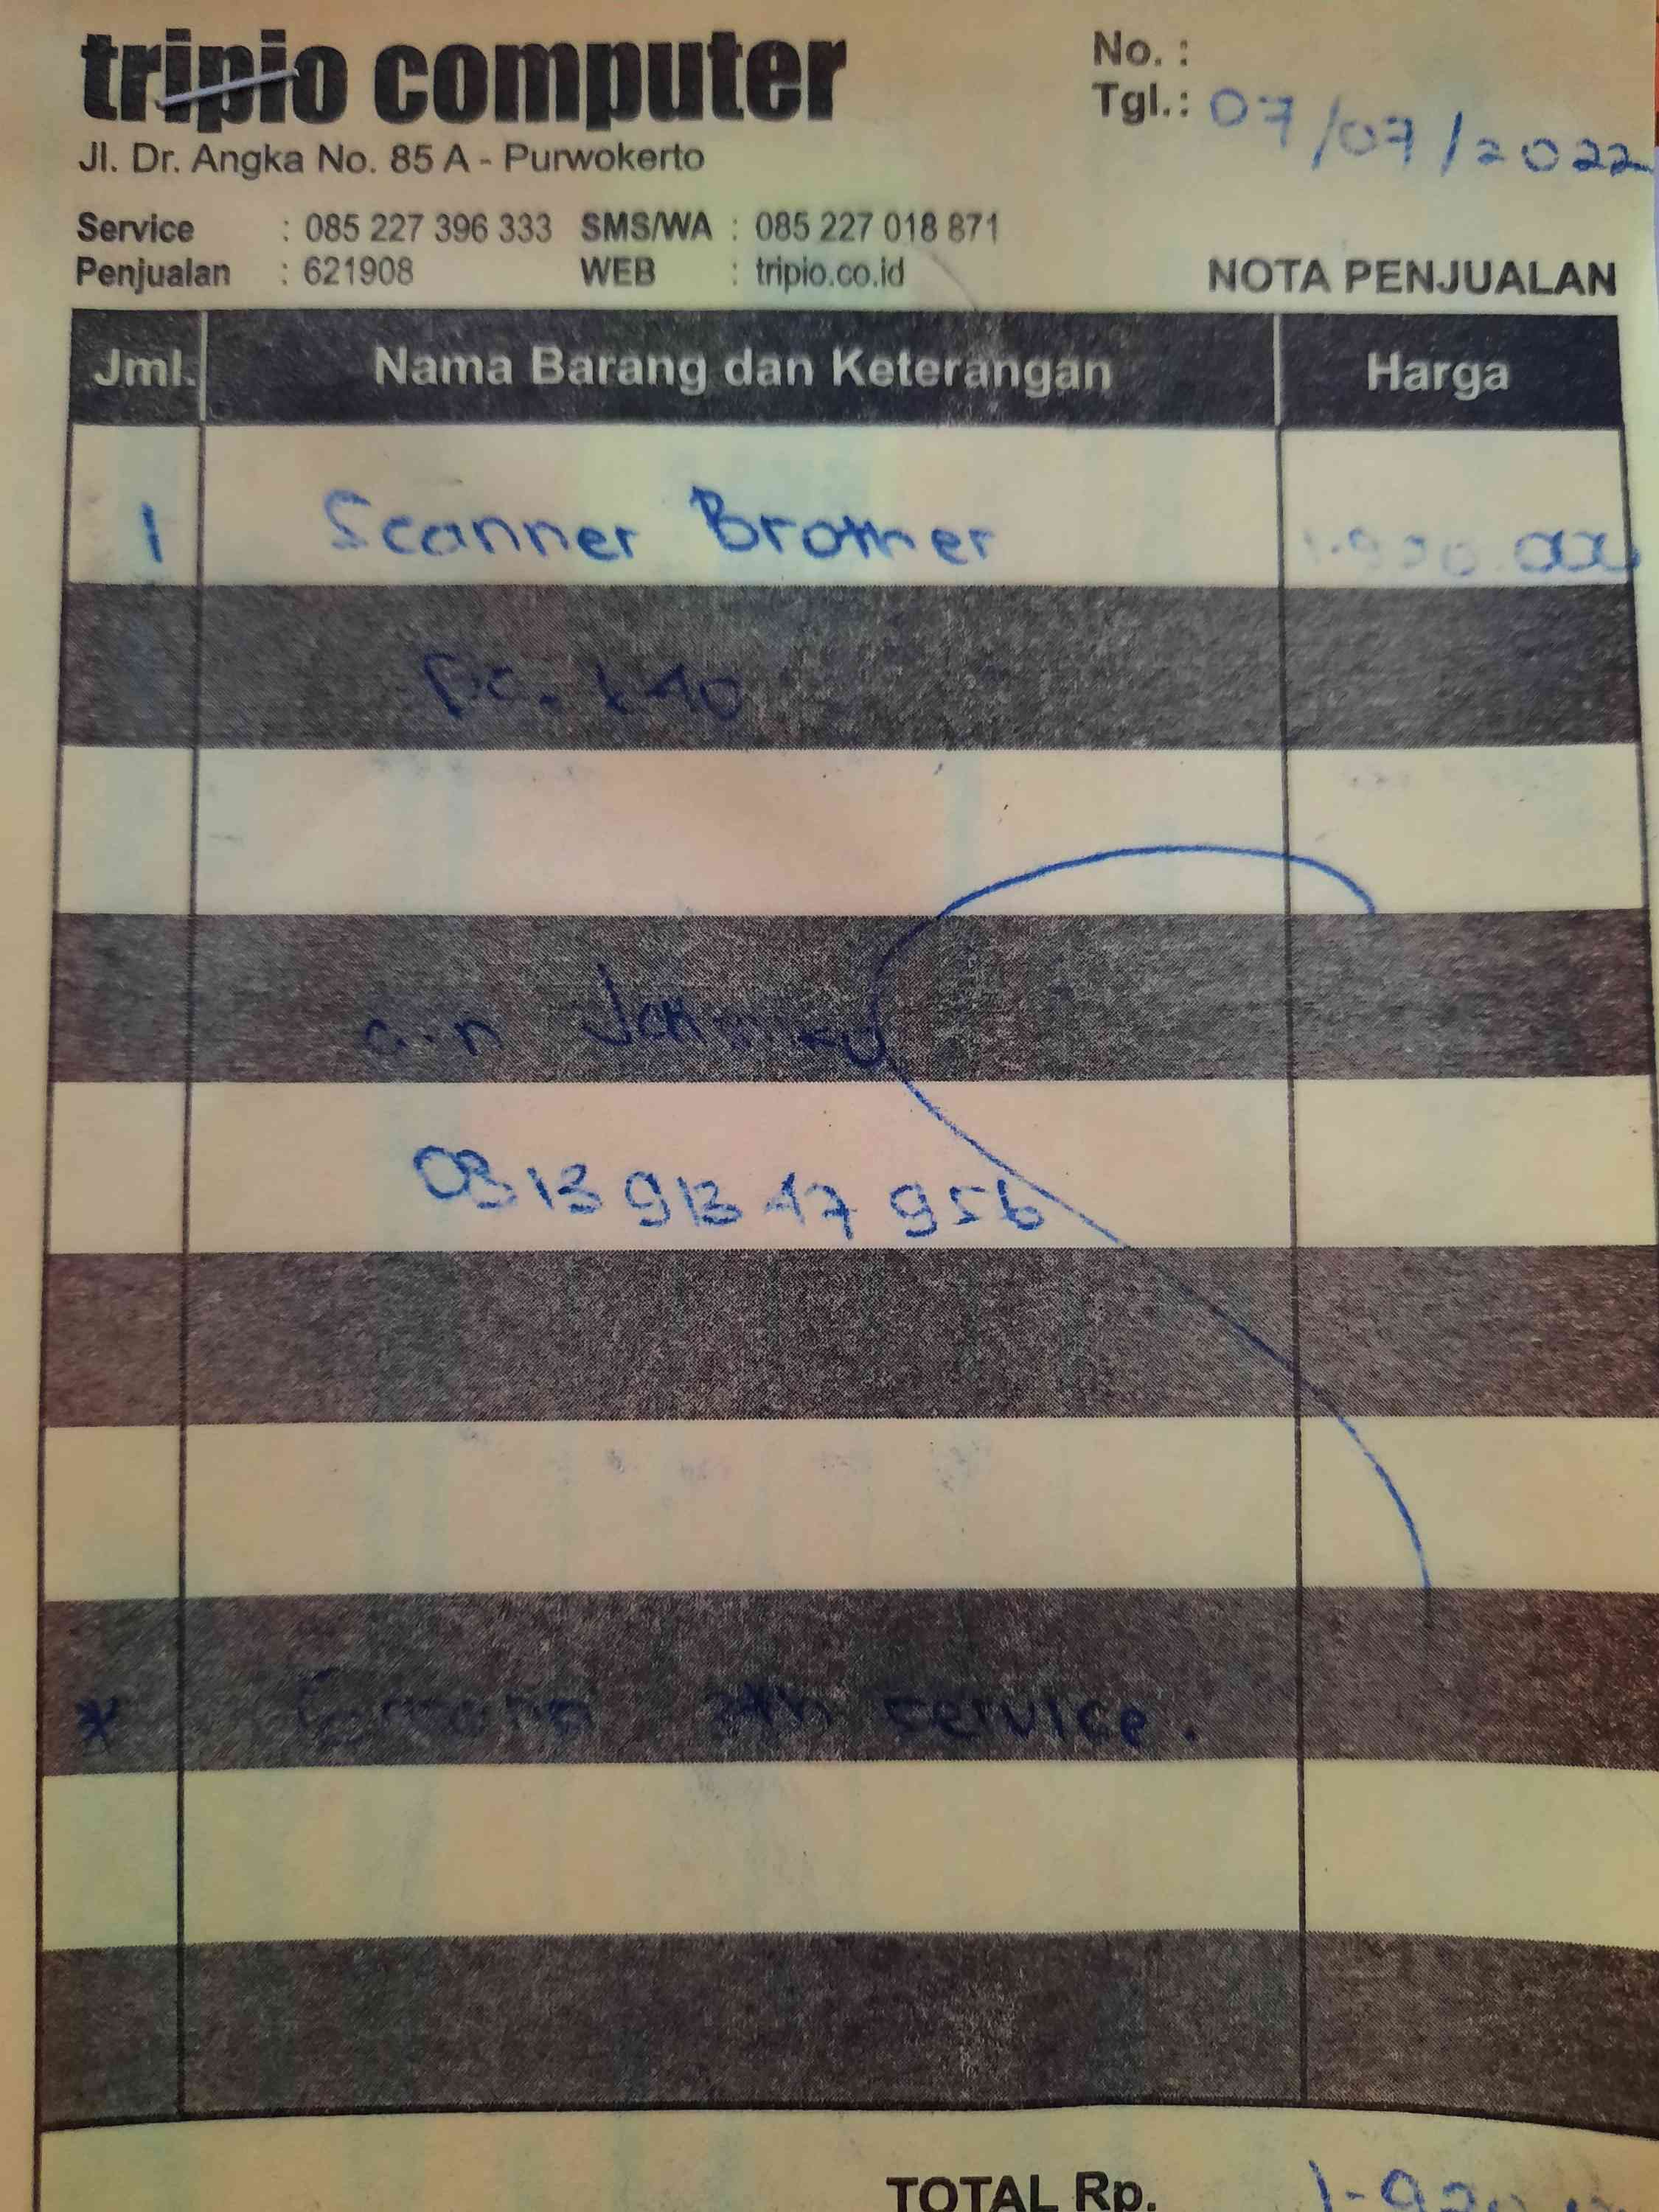 tripio computer
No. :
Tgl.: 07/07/2022
Jl. Dr. Angka No. 85 A - Purwokerto
Service : 085 227 396 333 SMS/WA : 085 227 018 871
Penjualan : 621908 WEB : tripio.co.id
NOTA PENJUALAN
Jml. Nama Barang dan Keterangan Harga
1 Scanner Brother
a.n
0813 913 47 956
* service.
TOTAL Rp.